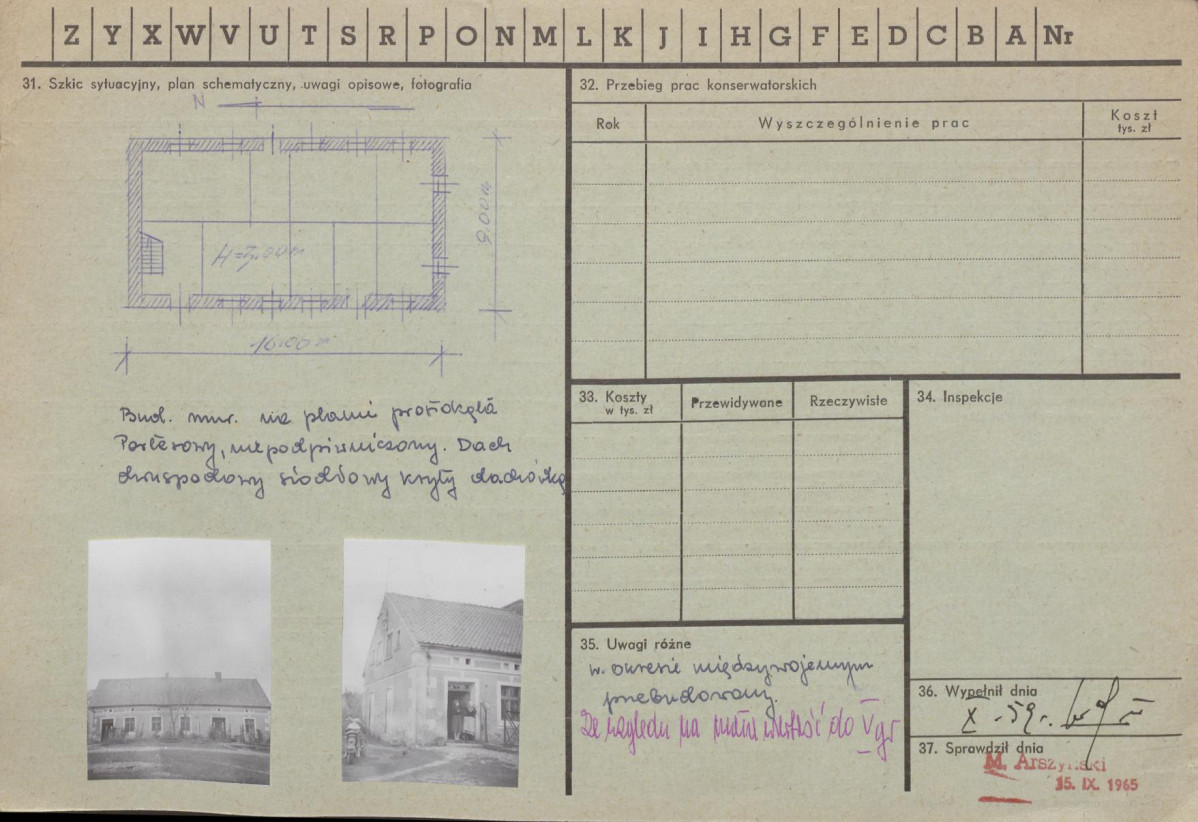 Z Y X W V U T S R P O N M L K J I H G F E D C B A Nr
31. Szkic sytuacyjny, plan schematyczny, uwagi opisowe, fotografia
N
9.00 m
16.00 m
Bud. mur. na planie prostokąta
Parterowy, niepodpiwniczony. Dach
dwuspadowy siodłowy kryty dachówką
32. Przebieg prac konserwatorskich
Rok
Wyszczególnienie prac
Koszt
tys. zł
33. Koszty
w tys. zł
Przewidywane
Rzeczywiste
34. Inspekcje
35. Uwagi różne
w okresie międzywojennym
przebudowany.
Ze względu na małą wartość do V gr
36. Wypełnił dnia
X - 59 r.
37. Sprawdził dnia
M. Arszyński
15. IX. 1965